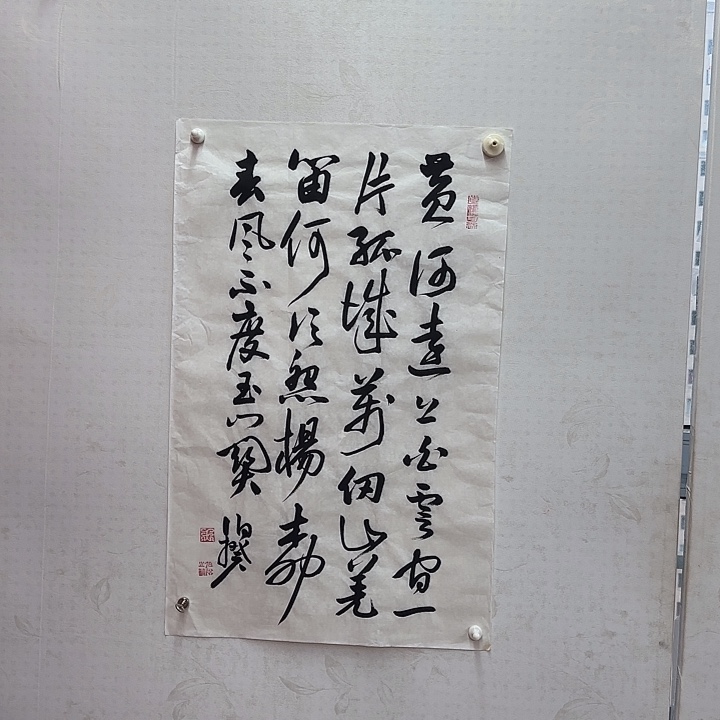 黄河遠上白雲間一
片孤城萬仞山羌
笛何須怨楊柳
春風不度玉門關